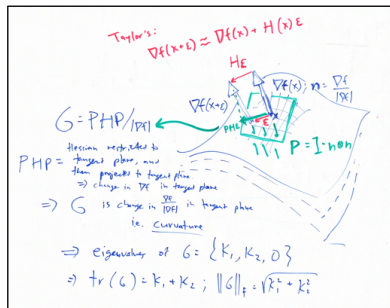 Taylor's:
∇f(x+ε) ≈ ∇f(x) + H(x)ε
Hε
∇f(x); n = ∇f/|∇f|
∇f(x+ε)
G = PHP/|∇f|
PHε
ε
x
P = I - n⊗n
Hessian restricted to
PHP = tangent plane, and
then projected to tangent plane
⇒ change in ∇f in tangent plane
⇒ G is change in ∇f/|∇f| in tangent plane
i.e. curvature
⇒ eigenvalues of G = {K₁, K₂, 0}
⇒ tr(G) = K₁ + K₂ ; ‖G‖F = √K₁² + K₂²